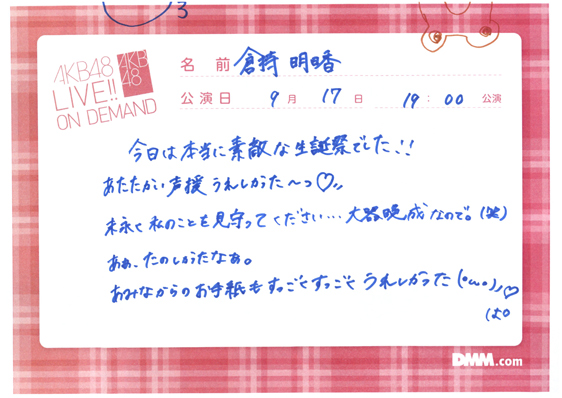 3
AKB48
LIVE!!
ON DEMAND
AKB
48
名 前 倉持 明日香
公演日 9月 17日 19:00 公演
今日は本当に素敵な生誕祭でした!!
あたたかい声援うれしかった〜っ♡
末永く私のことを見守ってください…大器晩成なので。(笑)
あぁ、たのしかったなぁ。
みなからのお手紙もすっごくすっごくうれしかった(・ω・)♡
DMM.com